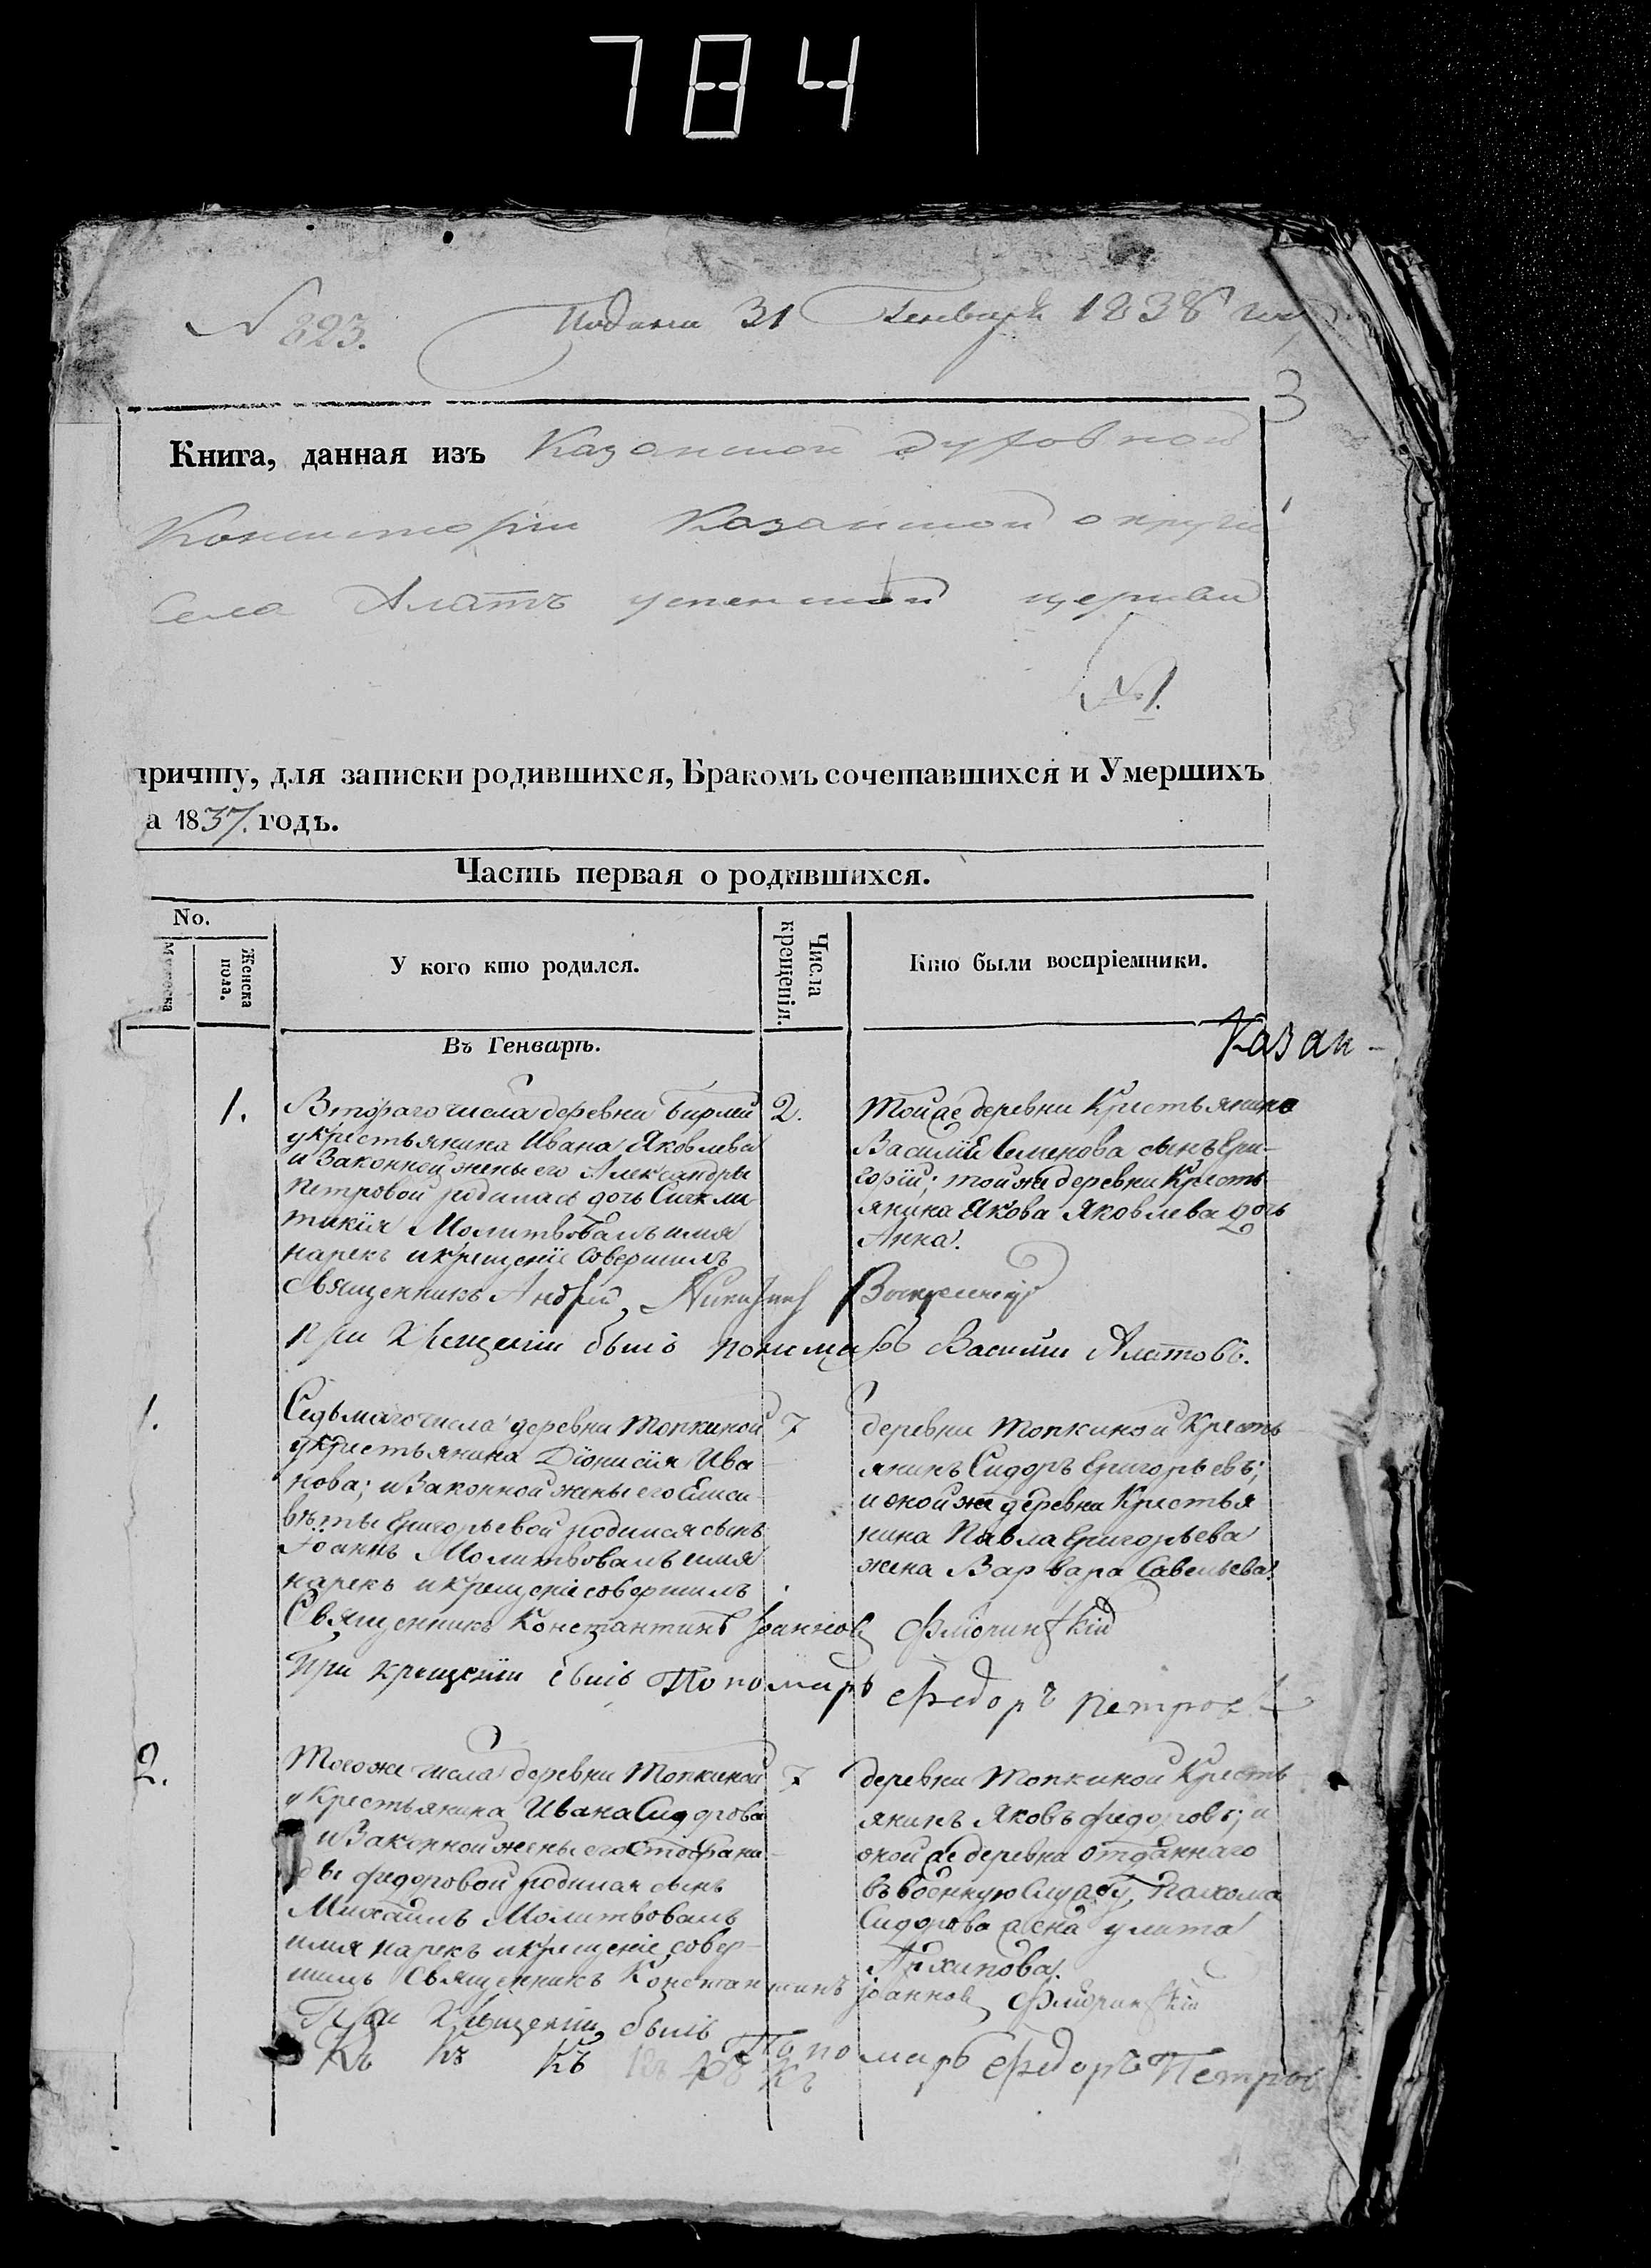 784
N 823.
Подана 31 Генваря 1838 года
3
Книга, данная изъ Казанской духовной
Консисторіи Казанской округи
Села Алатъ успенской церкви
№ 1.
причту, для записки родившихся, Бракомъ сочетавшихся и Умершихъ
а 1837. годъ.
Часть первая о родившихся.
No.
Женска пола.
У кого кто родился.
Числа крещенія.
Кто были воспріемники.
Казан-
Въ Генварѣ.
1.
Втораго числа деревни Бирлей
у крестьянина Ивана Яковлева
и Законной жены его Александры
Петровой родилась дочь Сигкли
тикія Молитвовалъ имя
нарекъ и крещеніе совершилъ
Священникъ Андрей Воскресенскій
при Крещеніи былъ пономарь Василій Алатовъ.
2.
Тойже деревни Крестьянина
Василія Семенова сынъ Гри-
горій; тойже деревни Кресть
янина Якова Яковлева дочь
Анна.
1.
Седьмаго числа деревни Топкиной
у крестьянина Діонисія Ива
нова; и Законной жены его Елиса
вѣты Григорьевой родился сынъ
Іоаннъ Молитвовалъ имя
нарекъ и крещеніе совершилъ
Священникъ Константинъ Іоанновъ Флоринскій
При крещеніи былъ Пономарь Федоръ Петровъ
7
деревни Топкиной Кресть
янинъ Сидоръ Григорьевъ;
и оной же деревни Крестья
нина Павла Григорьева
жена Варвара Савельева.
2.
Тогоже числа деревни Топкиной
у Крестьянина Ивана Сидорова
и Законной жены его Стефани
ды Федоровой родился сынъ
Михаилъ Молитвовалъ
имя нарекъ и крещеніе совер-
шилъ Священникъ Константинъ Іоанновъ Флоринскій
При Крещеніи былъ Пономарь Федоръ Петровъ
Къ Къ Къ Къ
7
деревни Топкиной Кресть
янинъ Яковъ Федоровъ; и
оной же деревни отданнаго
въ военную Службу Пахома
Сидорова жена улита
Архипова.